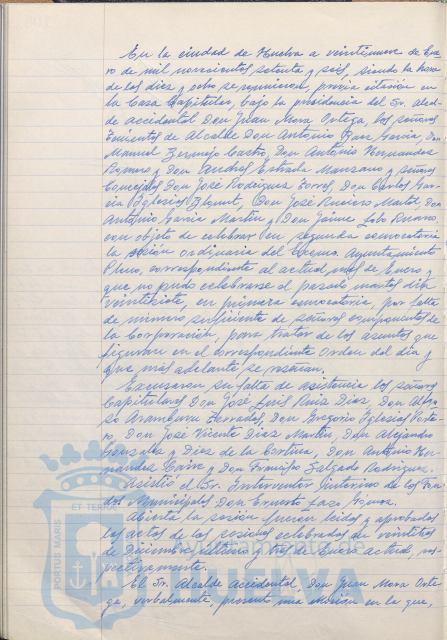 En la ciudad de Huelva a veintinueve de Ene-
ro de mil novecientos setenta y seis, siendo la hora
de las diez y ocho se reunieron, previa citación en
la Casa Capitular, bajo la presidencia del Sr. Alcal-
de accidental Don Juan Mora Ortega, los señores
Tenientes de Alcalde Don Antonio García, Don
Manuel Bermejo Castro, Don Antonio Hernandez
Romero y Don Andrés Estrada Manzano y señores
Concejales Don José Rodríguez Torres, Don Carlos Gar-
cia Iglesias, Don José Don
Antonio García Martín y Don Jaime Lobo
con objeto de celebrar en segunda convocatoria
la sesión ordinaria del Excmo. Ayuntamiento
Pleno, correspondiente al actual mes de Enero y
que no pudo celebrarse el pasado martes día
veintisiete, en primera convocatoria, por falta
de número suficiente de señores componentes de
la Corporación, para tratar de los asuntos que
figuran en el correspondiente Orden del día y
que más adelante se reseñan.
Excusaron su falta de asistencia los señores
Capitulares Don José Luis Ruiz Diaz, Don Alfon-
so Aramburu Terrades, Don Gregorio Iglesias
Don José Vicente Diaz Martín, Don Alejandro
Gonzalez y Diez de la Cortina, Don Antonio Her-
nandez y Don Francisco Salgado Rodriguez.
Asistió el Sr. Interventor Interino de los Fon-
dos Municipales Don Ernesto Lazo
Abierta la sesión fueron leídas y aprobadas
las actas de las sesiones celebradas en veintitres
de Diciembre último y tres de Enero actual, res-
pectivamente.
El Sr. Alcalde accidental, Don Juan Mora Orte-
ga, verbalmente, presentó una Moción en la que,
PORTUS MARIS
ET TERRAE
HUELVA